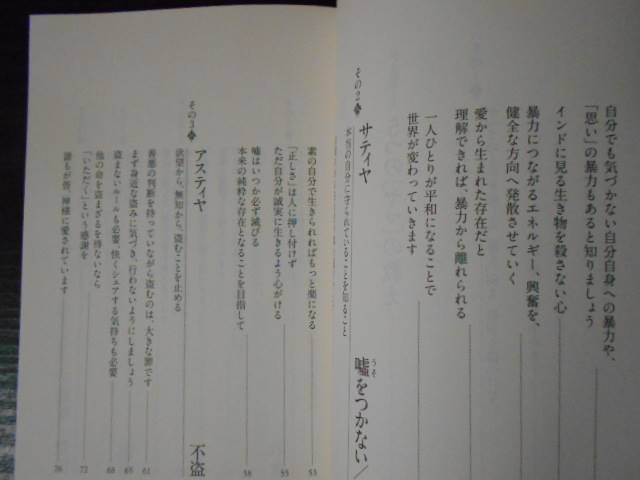 自分でも気づかない自分自身への暴力や、
「思い」の暴力もあると知りましょう
インドに見る生き物を殺さない心
暴力につながるエネルギー、興奮を、
健全な方向へ発散させていく
愛から生まれた存在だと
理解できれば、暴力から離れられる
一人ひとりが平和になることで
世界が変わっていきます
その2
サティヤ
嘘をつかない/
うそ
本当の自分に守られていることを知ること
素の自分で生きられればもっと楽になる
53
「正しさ」は人に押し付けず
ただ自分が誠実に生きるよう心がける
55
嘘はいつか必ず滅びる
本来の純粋な存在となることを目指して
58
その3
アスティヤ
不盗
欲望から、無知から、盗むことを止める
善悪の判断を持っていながら盗むのは、大きな罪です
61
まず身近な盗みに気づき、行わないようにしましょう
65
盗まないルールも必要、快くシェアする気持ちも必要
68
他の命を盗まざるを得ないなら
「いただく」という感謝を
72
誰もが皆、神様に愛されています
76